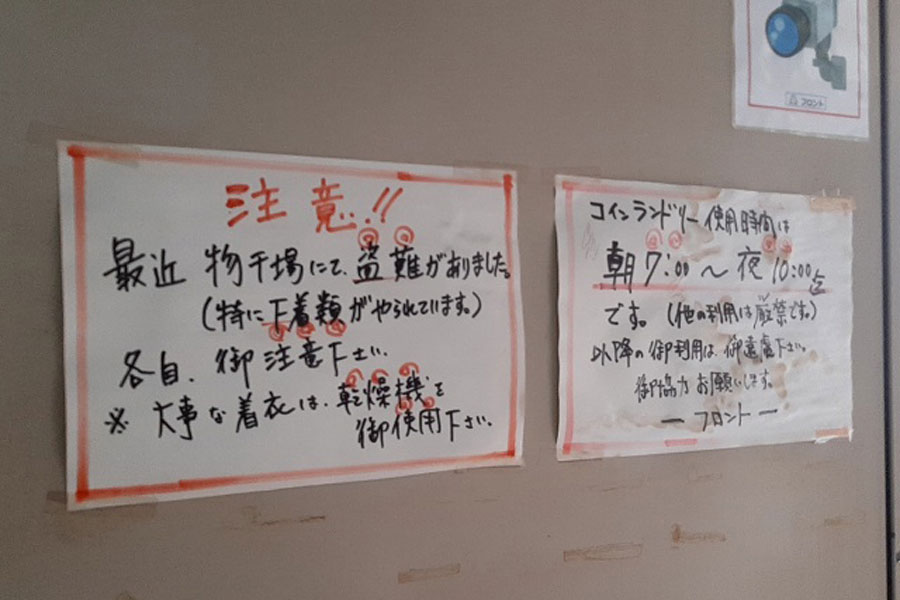 注意!!
最近 物干場にて、盗難がありました。
(特に下着類がやられています。)
各自、御注意下さい。
※ 大事な着衣は、乾燥機を
御使用下さい。
コインランドリー使用時間は
朝7:00～夜10:00迄
です。(他の利用は厳禁です。)
以降の御利用は、御遠慮下さい。
御協力お願いします。
ーフロントー
フロント